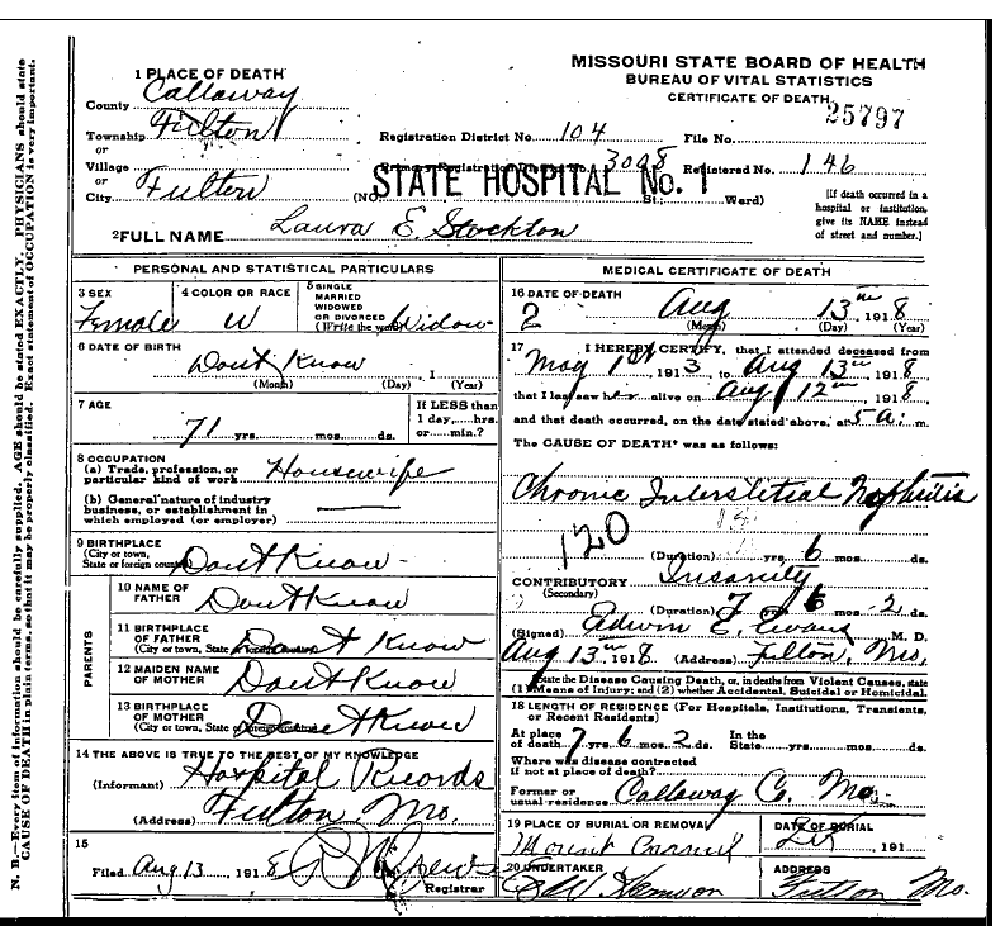 MISSOURI STATE BOARD OF HEALTH
BUREAU OF VITAL STATISTICS
CERTIFICATE OF DEATH
25797
1 PLACE OF DEATH
County Callaway
Township Fulton
or
Village
or
City Fulton
Registration District No. 104 File No.
Primary Registration District No. 3008 Registered No. 146
(No. STATE HOSPITAL No. 1 St.; Ward)
[If death occurred in a
hospital or institution,
give its NAME instead
of street and number.]
2 FULL NAME Laura E. Stockton
PERSONAL AND STATISTICAL PARTICULARS
3 SEX
Female
4 COLOR OR RACE
W
5 SINGLE
MARRIED
WIDOWED
OR DIVORCED
(Write the word) Widow
6 DATE OF BIRTH
Dont Know
(Month) (Day) , 1 (Year)
7 AGE
71 yrs. mos. ds.
If LESS than
1 day, hrs.
or min.?
8 OCCUPATION
(a) Trade, profession, or
particular kind of work Housewife
(b) General nature of industry
business, or establishment in
which employed (or employer)
9 BIRTHPLACE
(City or town,
State or foreign country) Dont Know
PARENTS
10 NAME OF
FATHER Dont Know
11 BIRTHPLACE
OF FATHER
(City or town, State or foreign country) Dont Know
12 MAIDEN NAME
OF MOTHER Dont Know
13 BIRTHPLACE
OF MOTHER
(City or town, State or foreign country) Dont Know
14 THE ABOVE IS TRUE TO THE BEST OF MY KNOWLEDGE
(Informant) Hospital Records
(Address) Fulton Mo.
15
Filed Aug 13 191 8
Registrar
MEDICAL CERTIFICATE OF DEATH
16 DATE OF DEATH
2 Aug 13 , 191 8
(Month) (Day) (Year)
17 I HEREBY CERTIFY, that I attended deceased from
May 1st , 191 3, to Aug 13 191 8
that I last saw her alive on Aug 12 191 8
and that death occurred, on the date stated above, at 5 a. m.
The CAUSE OF DEATH* was as follows:
Chronic Interstitial Nephritis
120
(Duration) yrs. 6 mos. ds.
CONTRIBUTORY Insanity
(Secondary)
(Duration) 7 6 mos. 2 ds.
(Signed) Edwin E. Evans M. D.
Aug 13 191 8. (Address) Fulton, Mo.
*State the Disease Causing Death, or, in deaths from Violent Causes, state
(1) Means of Injury; and (2) whether Accidental, Suicidal or Homicidal.
18 LENGTH OF RESIDENCE (For Hospitals, Institutions, Transients,
or Recent Residents)
At place
of death 7 yrs. 6 mos. 2 ds.
In the
State yrs. mos. ds.
Where was disease contracted
if not at place of death?
Former or
usual residence Callaway Co. Mo.
19 PLACE OF BURIAL OR REMOVAL
Mount Carmel
DATE OF BURIAL
, 191
20 UNDERTAKER
ADDRESS
Fulton Mo.
N. B.—Every item of information should be carefully supplied. AGE should be stated EXACTLY. PHYSICIANS should state
CAUSE OF DEATH in plain terms, so that it may be properly classified. Exact statement of OCCUPATION is very important.